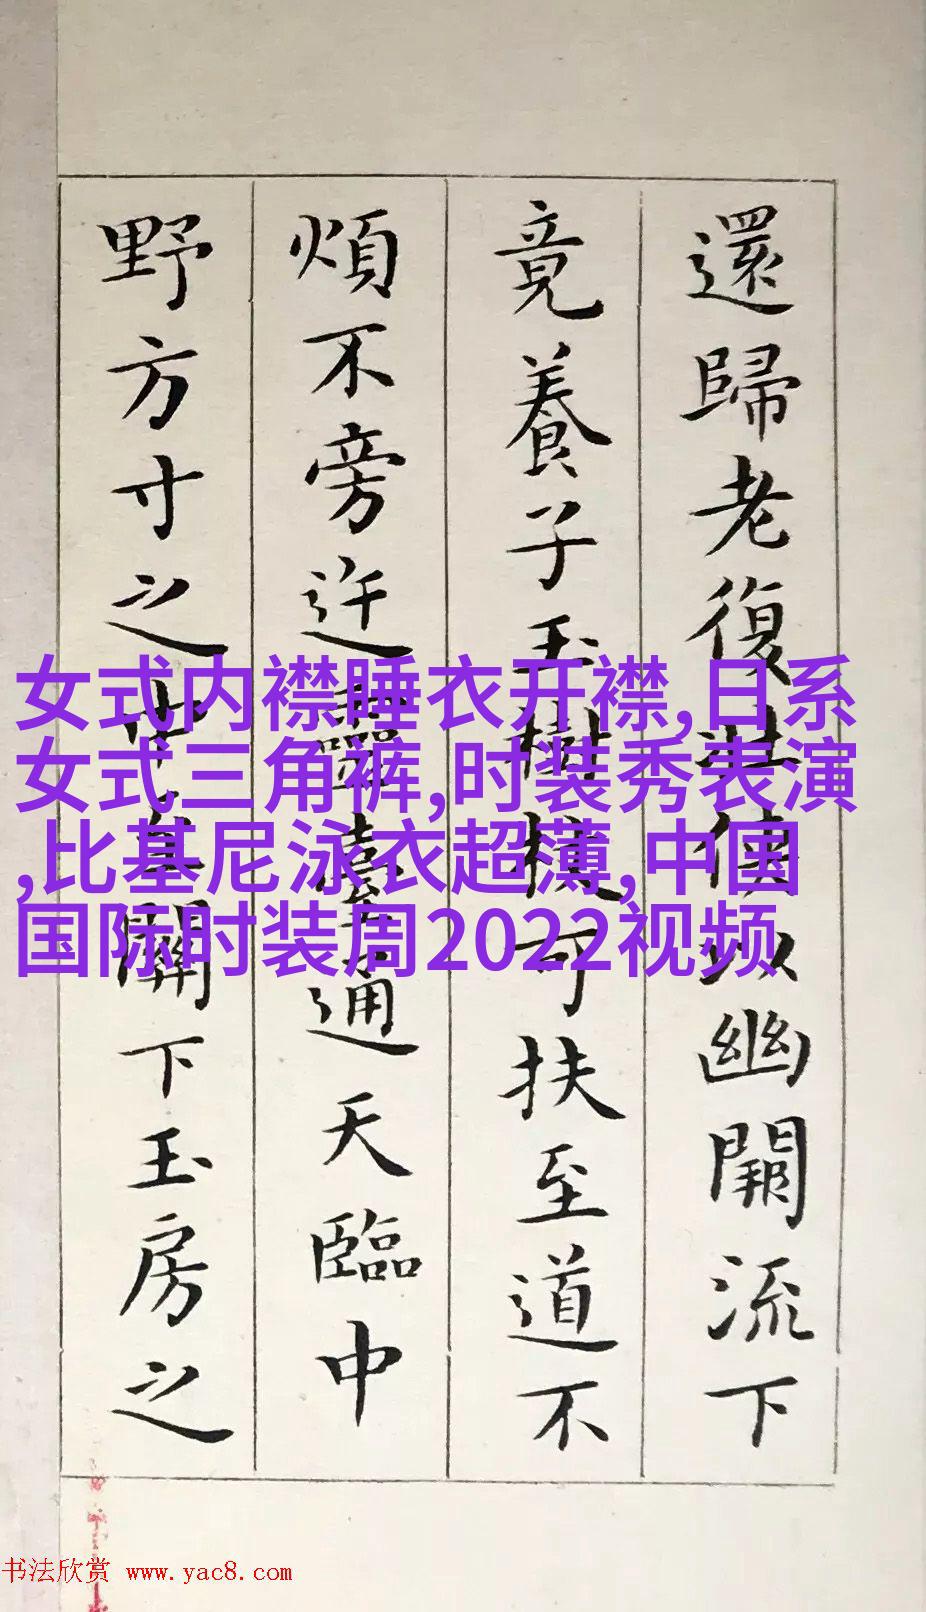 還歸老復壯俠以幽闕流下
竟養子玉樹杖可扶至道不
煩不旁迕靈臺通天臨中
野方寸之中至關下玉房之
女式内襟睡衣开襟,日系
女式三角裤,时装秀表演
,比基尼泳衣超薄,中国
国际时装周2022视频
书法欣赏 www.yac8.com